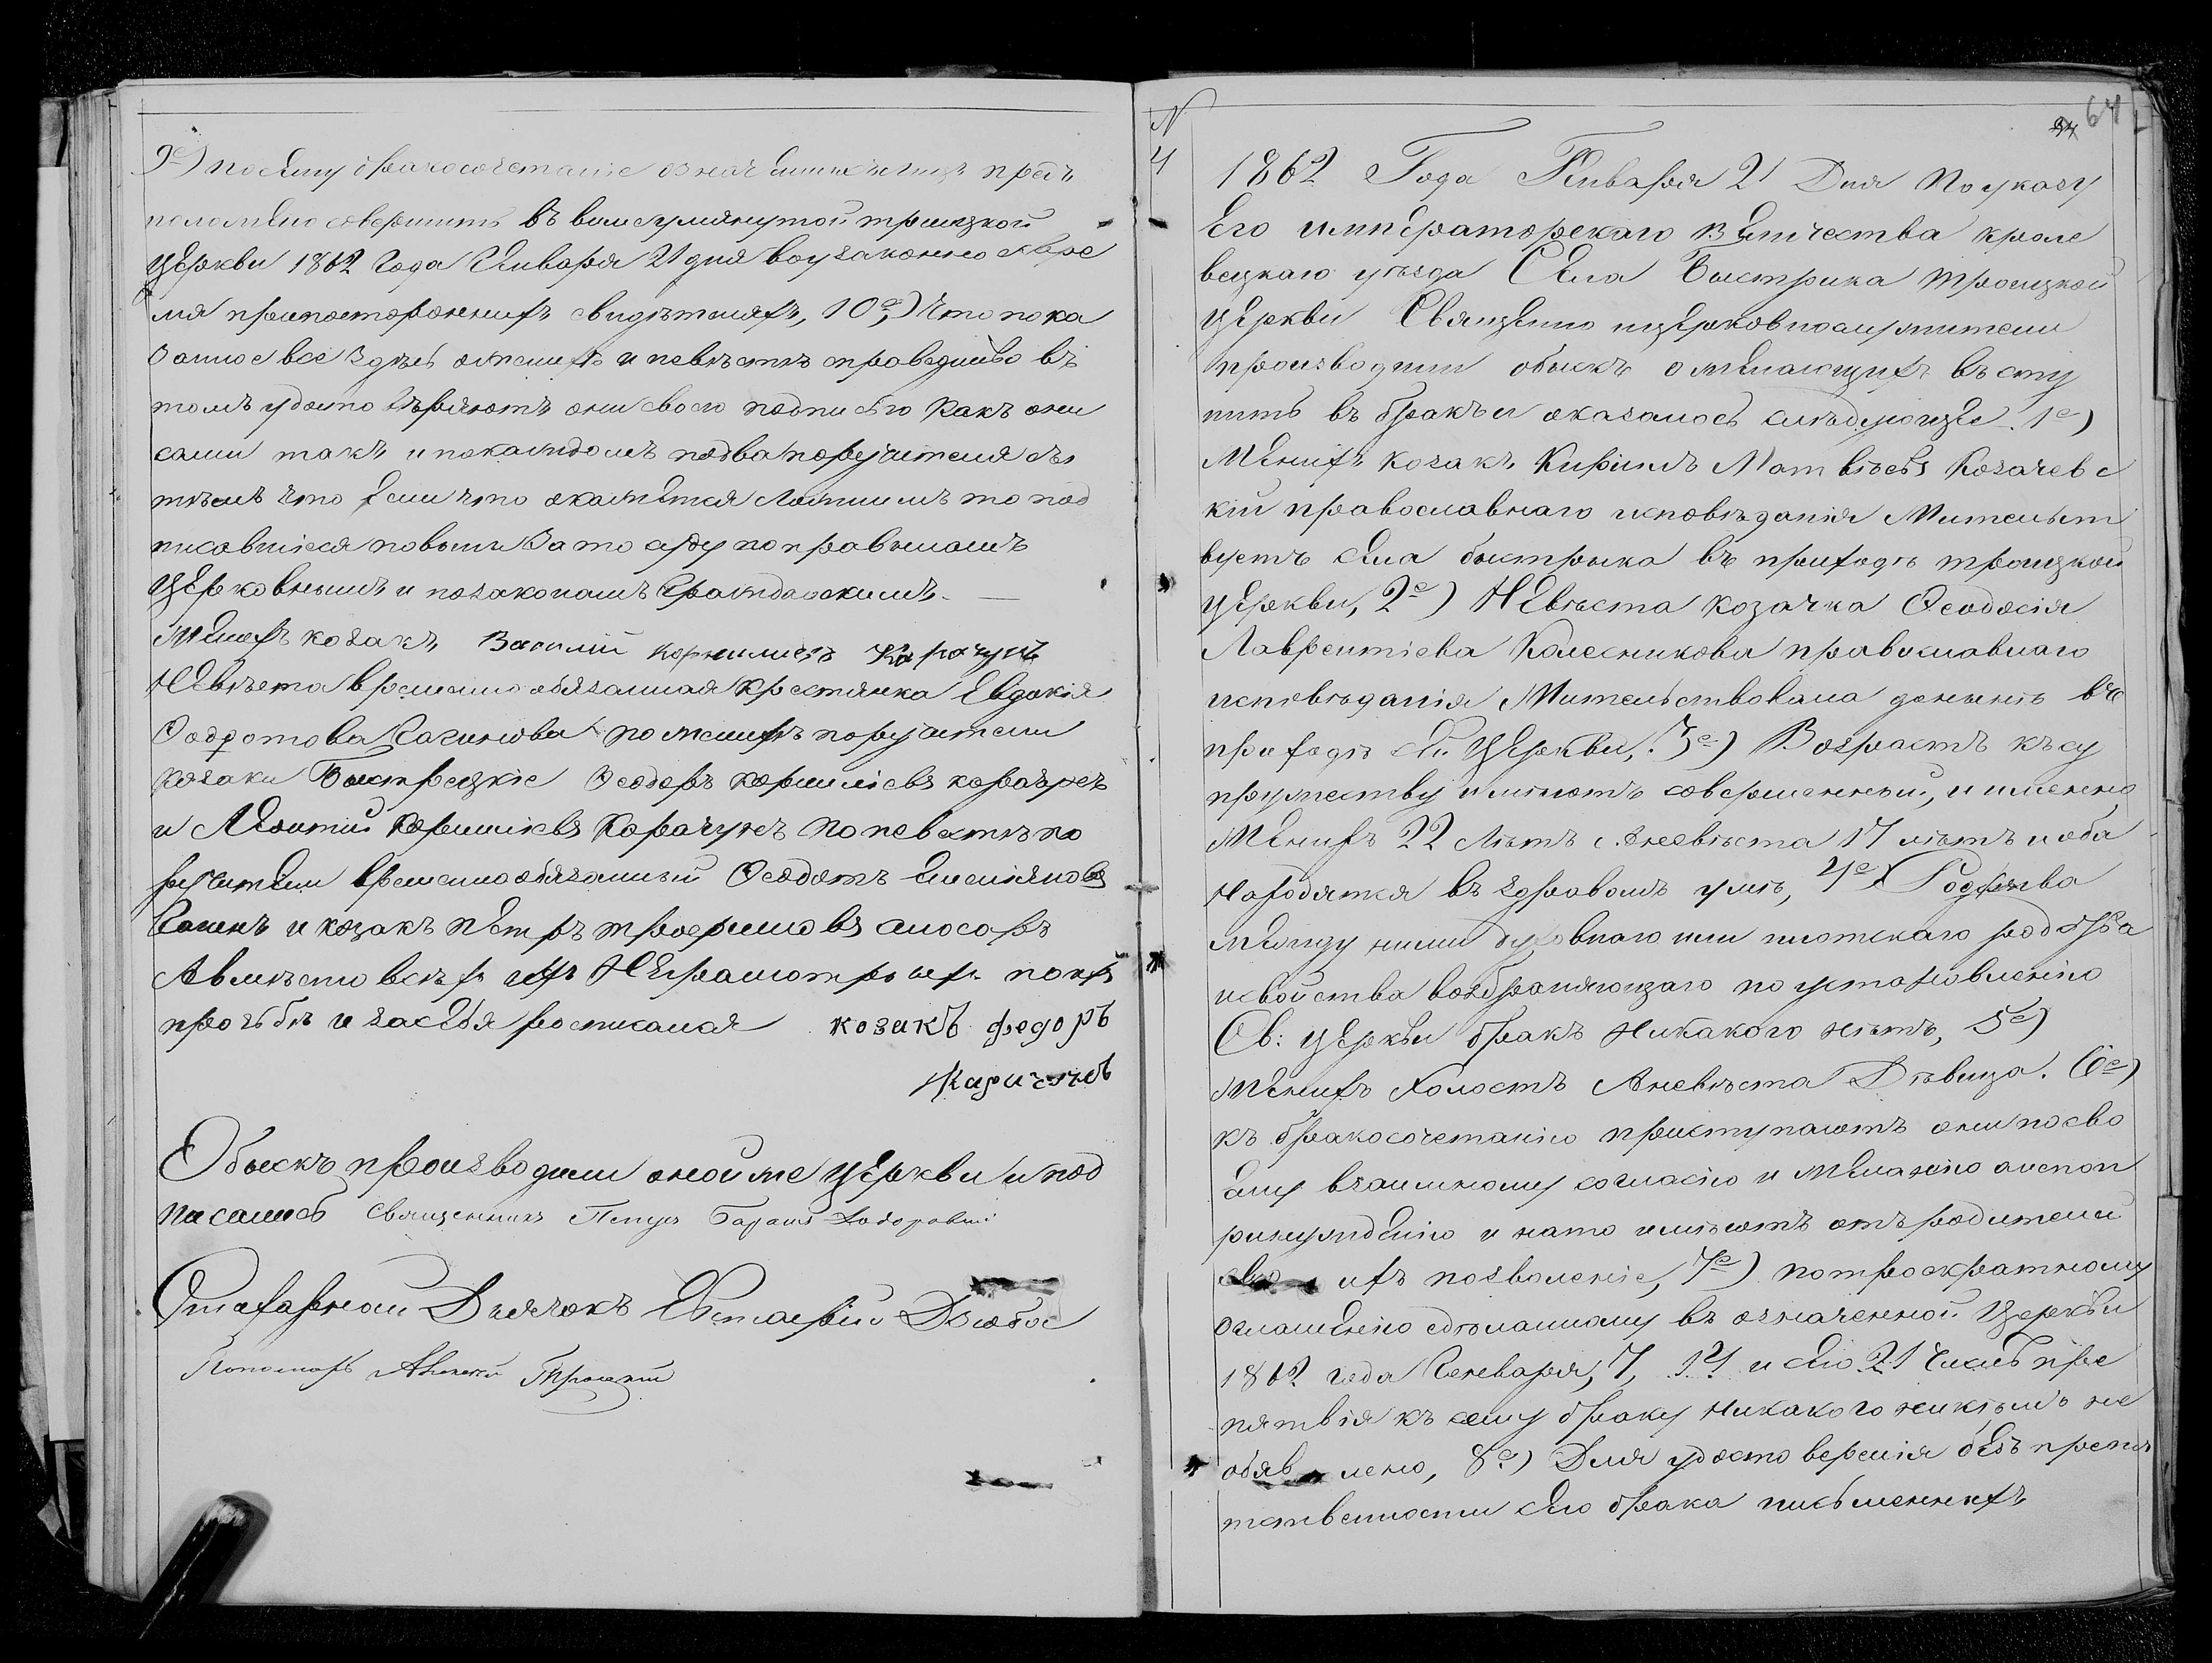 9е) посему бракосочетаніе означенныхъ лицъ пред
положено совершить въ вышеупомянутой троицкой
Церкви 1862 Года Генваря 21 дня воузаконно е вре
мя припостороннихъ свидѣтеляхъ, 10е) Что пока
занное все здѣсь оженихѣ и невѣстѣ справедливо въ
томъ удостовѣряютъ они своею подписью Какъ они
сами такъ и покаждомъ подва поручителя съ
тѣмъ что Если что окажется ложнымъ то под
писавшіеся повинны Зато суду поправиламъ
Церковнымъ и позаконамъ Гражданскимъ. —
Женихъ козакъ Василій Корниліевъ Карачунъ
Невѣста временно обязанная Крестянка Евдокія
по женихѣ поручители
козаки Быстрецкіе Ѳеодоръ Корниліевъ
и Корниліевъ Карачунъ По невестѣ по
ручители временнообязанный Ѳеодотъ
и козакъ Петръ слюсаръ
Авмѣсто всѣхъ ихъ Неграмотныхъ поихъ
прозьбѣ и засебя росписался козакъ федоръ

Обыскъ производили оной же Церкви и под
писались Священникъ Петръ
Дьячокъ Евстафій
Пономарь Троицкій
N
64
4
1862 Года Генваря 21 Дня По указу
Его императорскаго Величества кроле
вецкаго уѣзда Села Быстрика Троицкой
Церкви Священно ицерковнослужители
производили обыскъ ожелающихъ всту
пить въ бракъ и оказалось слѣдующее. 1е)
Женихъ козакъ Кирилъ Матвѣевъ Козачевс
кій православнаго исповѣданія Жительст
вуетъ села быстрика въ приходѣ троицкой
Церкви, 2е) Невѣста козачка Ѳеодосія
Лаврентіева Колесникова православнаго
исповѣданія Жительствовала донынѣ въ
приходѣ сей Церкви, 3е) Возрастъ къ су
пружеству имѣютъ совершенный, и именно
Женихъ 22 Лѣтъ Аневѣста 17 лѣтъ и оба
находятся въ здравомъ умѣ, 4е) Родства
между ними духовнаго или плотскаго родства
исвойства возбраняющаго по установленію
Св: церкви бракъ Никакого нѣтъ, 5е)
Женихъ Холостъ Аневѣста Дѣвица. 6е)
къ бракосочетанію приступаютъ они посво
ему взаимному согласію и желанію анепоп
ринужденію и нато имѣютъ отъ родителей
ихъ позволеніе, 7е) потроекратному
оглашенію сдѣланному въ означенной Церкви
1862 года Генваря, 7, 14 и сего 21 Числъ пре
пятствія къ сему браку Никакого никѣмъ не
объявлено, 8е) Для удостоверенія безъ препя
тственности сего брака письменныхъ